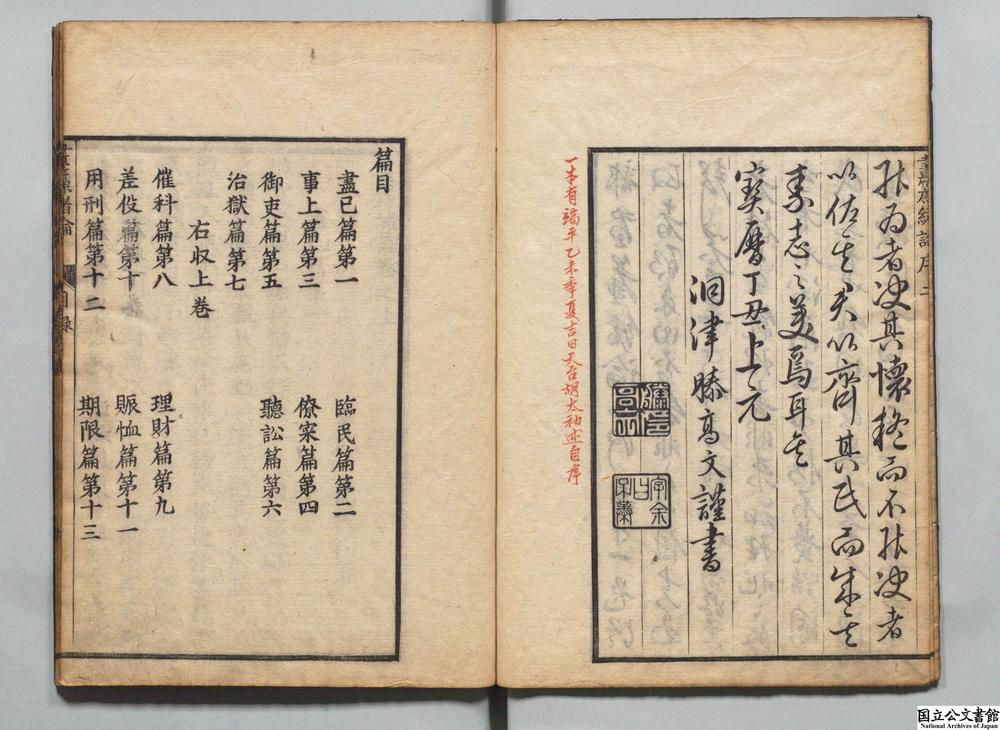 晝簾緒論序 二
能為者決其懷稔而不能決者
以佐其君以齊其民而成其
素志之美焉耳矣
寶曆丁丑上元
洞津滕高文謹書
一本有端平乙未季夏吉日天台胡太初述自序
篇目
盡己篇第一 臨民篇第二
事上篇第三 僚寀篇第四
御吏篇第五 聽訟篇第六
治獄篇第七
右収上卷
催科篇第八 理財篇第九
差伇篇第十 賑恤篇第十一
用刑篇第十二 期限篇第十三
晝簾緒論 目錄
国立公文書館
National Archives of Japan